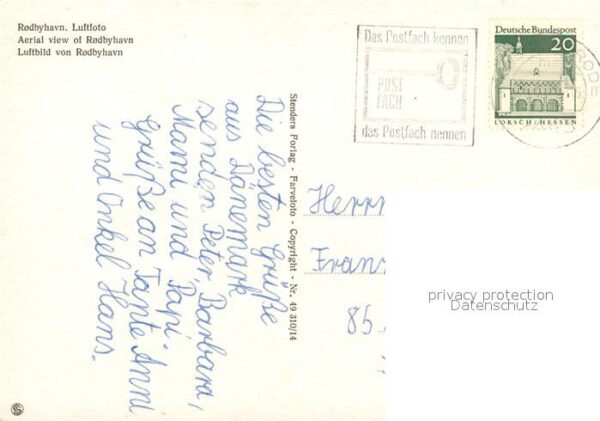 Rødbyhavn. Luftfoto
Aerial view of Rødbyhavn
Luftbild von Rødbyhavn
Das Postfach kennen
POST
FACH
das Postfach nennen
Deutsche Bundespost
20
LORSCH/HESSEN
Stenders Forlag - Farvefoto - Copyright - Nr. 49 310/14
Die besten Grüße
aus Dänemark
senden Peter, Barbara,
Mami und Papi.
Grüße an Tante Anni
und Onkel Hans.
Herrn
Franz
85
privacy protection
Datenschutz